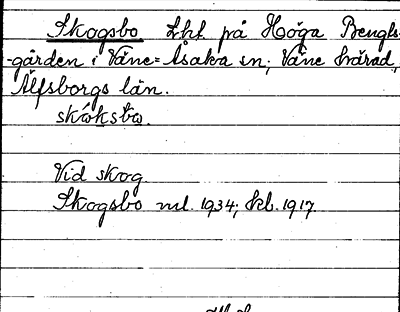 Skogsbo Lht på Höga Bengts-
-gården i Väne-Åsaka sn; Väne härad,
Älfsborgs län.
skòksbo.
Vid skog
Skogsbo ml. 1934; Kb. 1917.